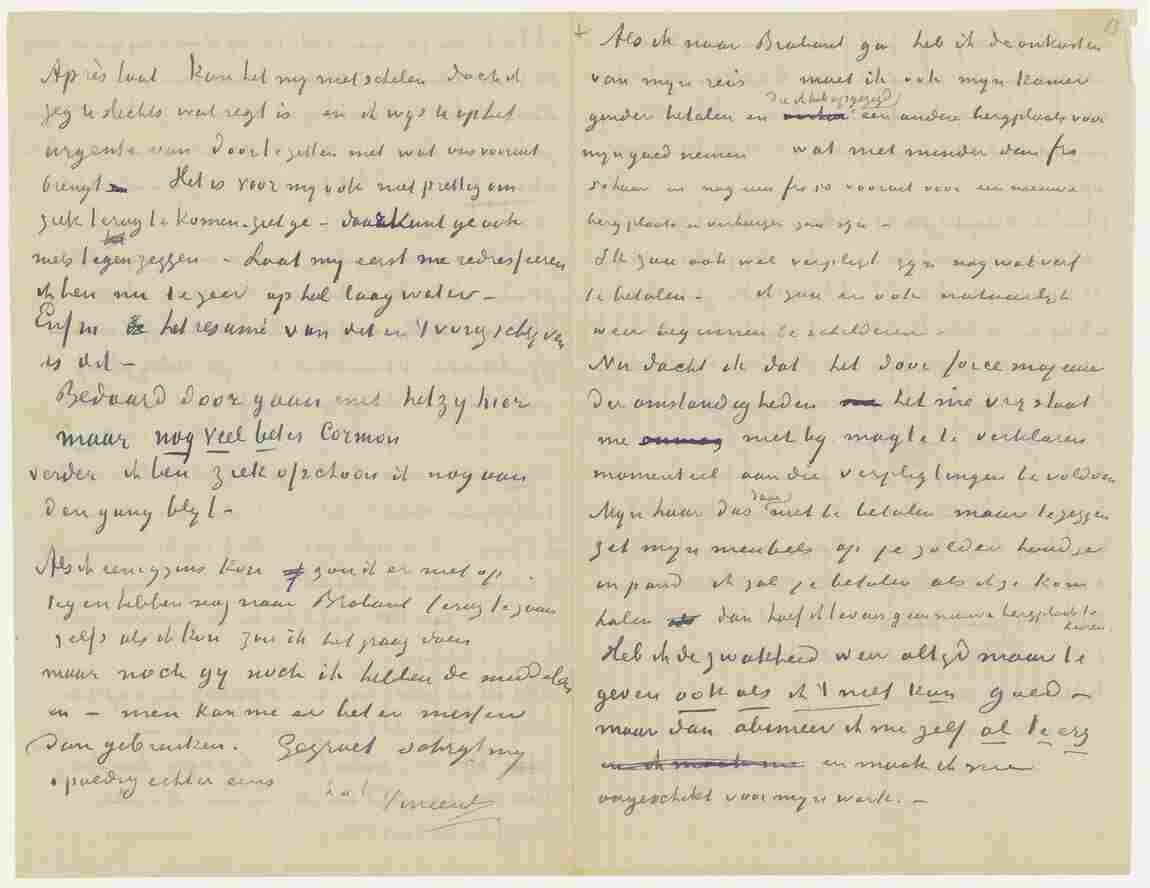 Après tout kan het my niet schelen doch ik
zeg U slechts wat regt is en ik wys U op het
urgente van door te zetten met wat ons vooruit
brengt. Het is voor my ook niet prettig om
ziek terug te komen. ziet ge – daar kunt ge ook
niets tegen zeggen – Laat my eerst me redresseeren
ik ben nu te zeer op het laag water –
Enfin het resumé van dit en 't vorig schryven
is dit –
Bedaard door gaan met hetzy hier
maar nog veel beter Cormon
verder ik ben ziek ofschoon ik nog aan
den gang blyf –
Als ik eenigzins kon zou ik er niet op
tegen hebben nog naar Brabant terug te gaan
zelfs als ik kon zou ik het graag doen
maar noch gy noch ik hebben de middelen
en – men kan me er beter missen
dan gebruiken. Gegroet schryf my
spoedig echter eens
t.à.t. Vincent
13
Als ik naar Brabant ga heb ik de onkosten
van myn reis moet ik ook myn kamer
die ik heb opgezegd
ginder betalen en een andere bergplaats voor
myn goed nemen wat niet minder dan frs
schuur en nog een frs 50 vooruit voor een nieuwe
bergplaats en verhuizen zou zyn –
Ik zou ook wel verpligt zyn nog wat verf
te betalen – ik zou er ook natuurlyk
weer beginnen te schilderen –
Nu dacht ik dat het door force majeure
der omstandigheden het me vry staat
me niet by magte te verklaren
momenteel aan die verpligtingen te voldoen
daar
Myn huur dus niet te betalen maar te zeggen
zet myn meubels op je zolder houd ze
in pand ik zal je betalen als ik ze kom
halen dan hoef ik tevens geen nieuwe bergplaats te
huren.
Heb ik de zwakheid weer altyd maar te
geven ook als ik 't niet kan goed –
maar dan abimeer ik me zelf al te erg
en ik maak me en maak ik me
ongeschikt voor myn werk. –